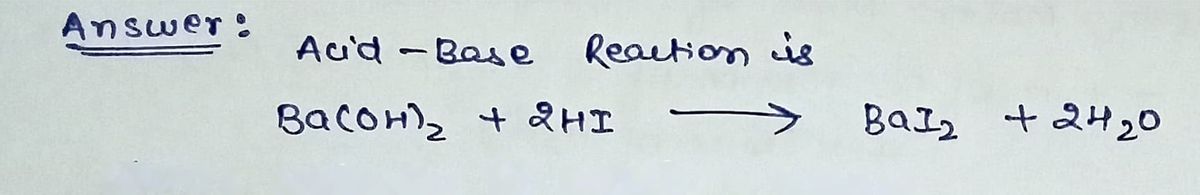 Answer:
Acid-Base Reaction is
Ba(OH)₂ + 2HI ⟶ BaI₂ + 2H₂O